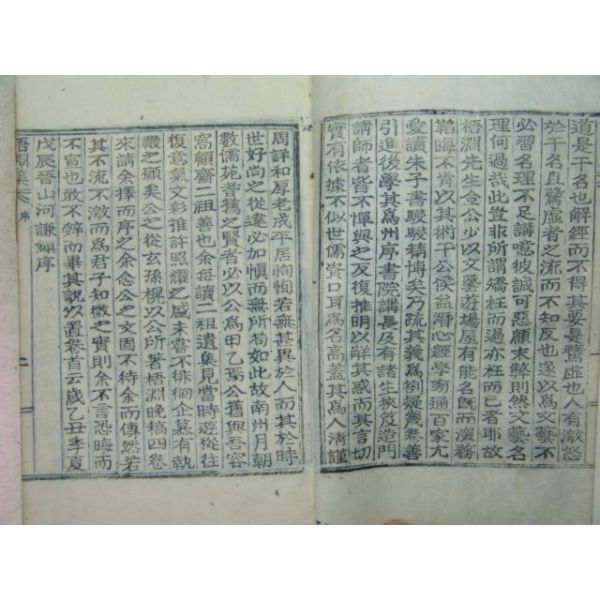 道是干名也解經而不得其要是騖虛也人有激怒
於干名自騖虛者之流而不知反也遂以爲文藝不
必習名理不足講噫彼誠可惡顧末弊則然文藝名
理何過哉此豈非所謂矯枉而過亦枉而已者耶故
梧淵先生金公少以文藝遊場屋有能名旣而深務
韜晦不肯以其術干公侯益潛心經學旁通百家尤
愛讀朱子書駸駸精博矣乃疏其義爲箚幾卷善
引進後學其爲州序書院講長及有諸生挾及造門
請師者皆不憚與之反復推明以解其惑而其言切
實有依據不似世儒資口耳爲名高蓋其爲人淸謹
周詳和厚老成平居恂恂若無甚異於人而其於時
世好尙之從違必加愼而無所苟如此故南州月朝
數儒苑耆舊之賢者必以公爲甲乙焉公舊與吾容
窩顧齋二祖善也余每讀二祖遺集見當時遊從往
復意氣文彩推許照耀之盛未嘗不徘徊企慕有執
鞭之願矣公之從玄孫楻以公所著梧淵晚稿四卷
來請余擇而序之余念公之文固不待余而傳然若
其不流不激而爲君子知微之實則余不言恐晦而
不宣也敢不辭而畢其說以置卷首云歲乙丑季夏
戊辰晉山河謙鎭序
梧淵集 卷 序
二